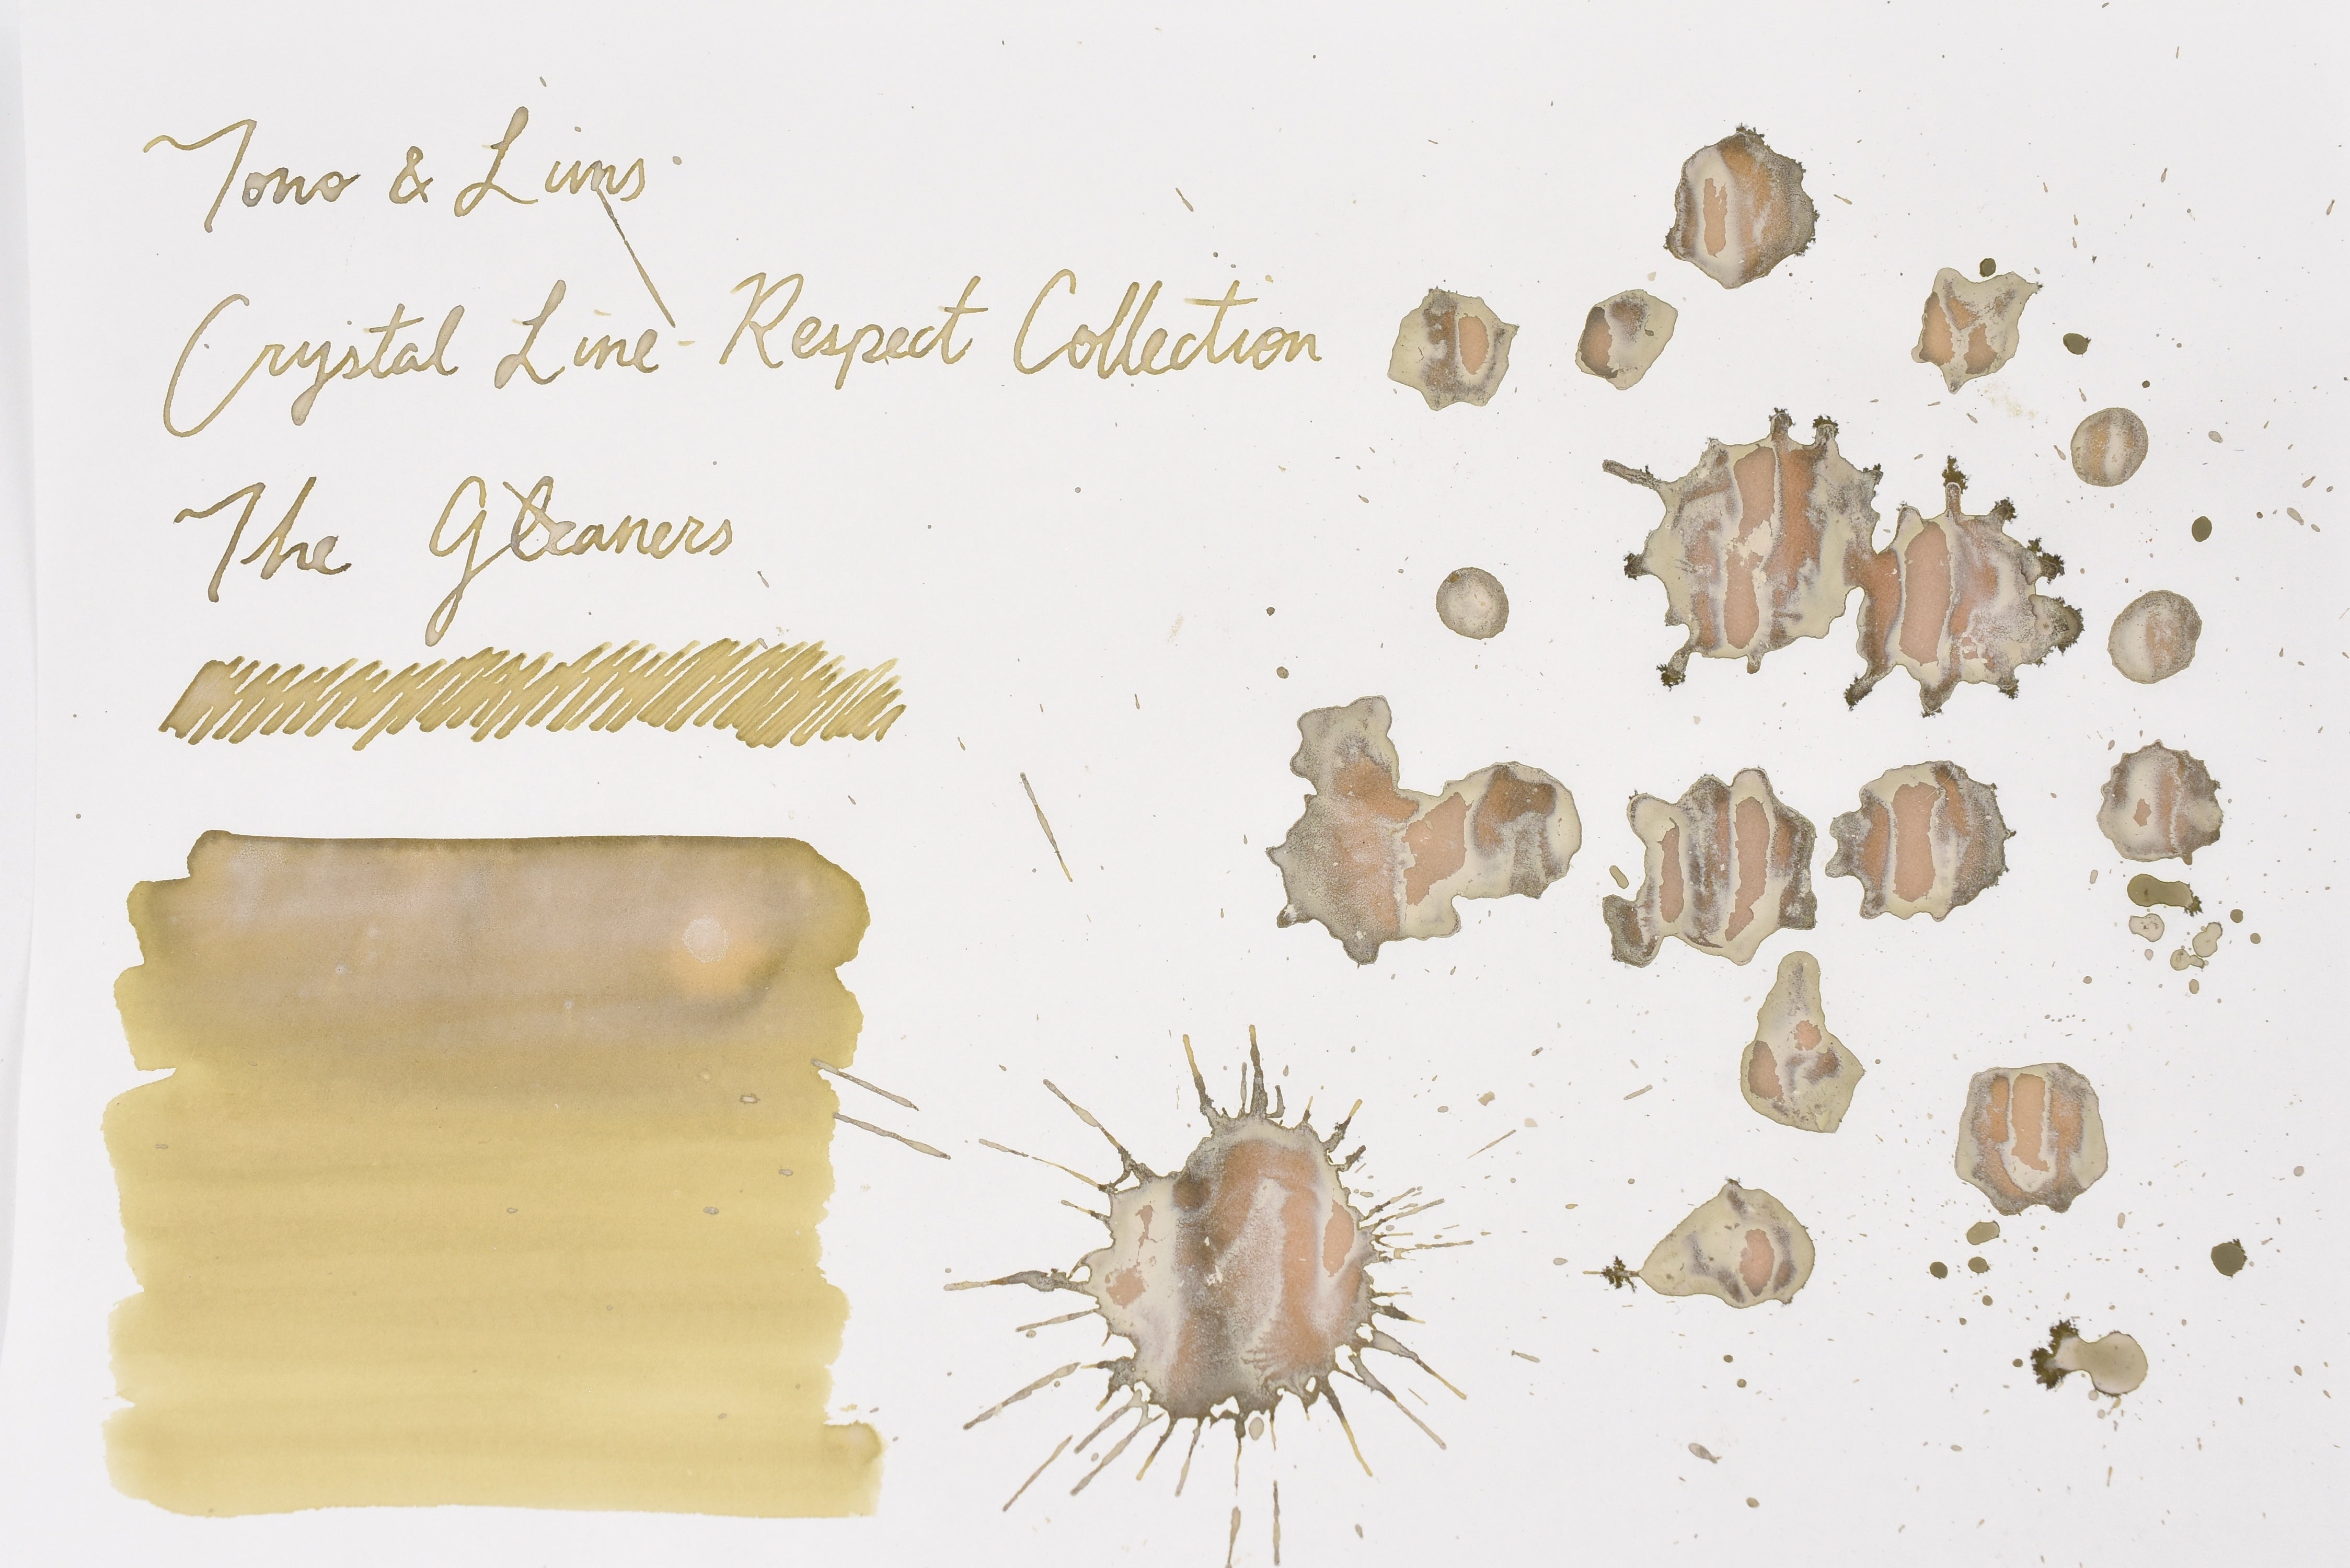 Tono & Lims
Crystal Line - Respect Collection
The Gleaners